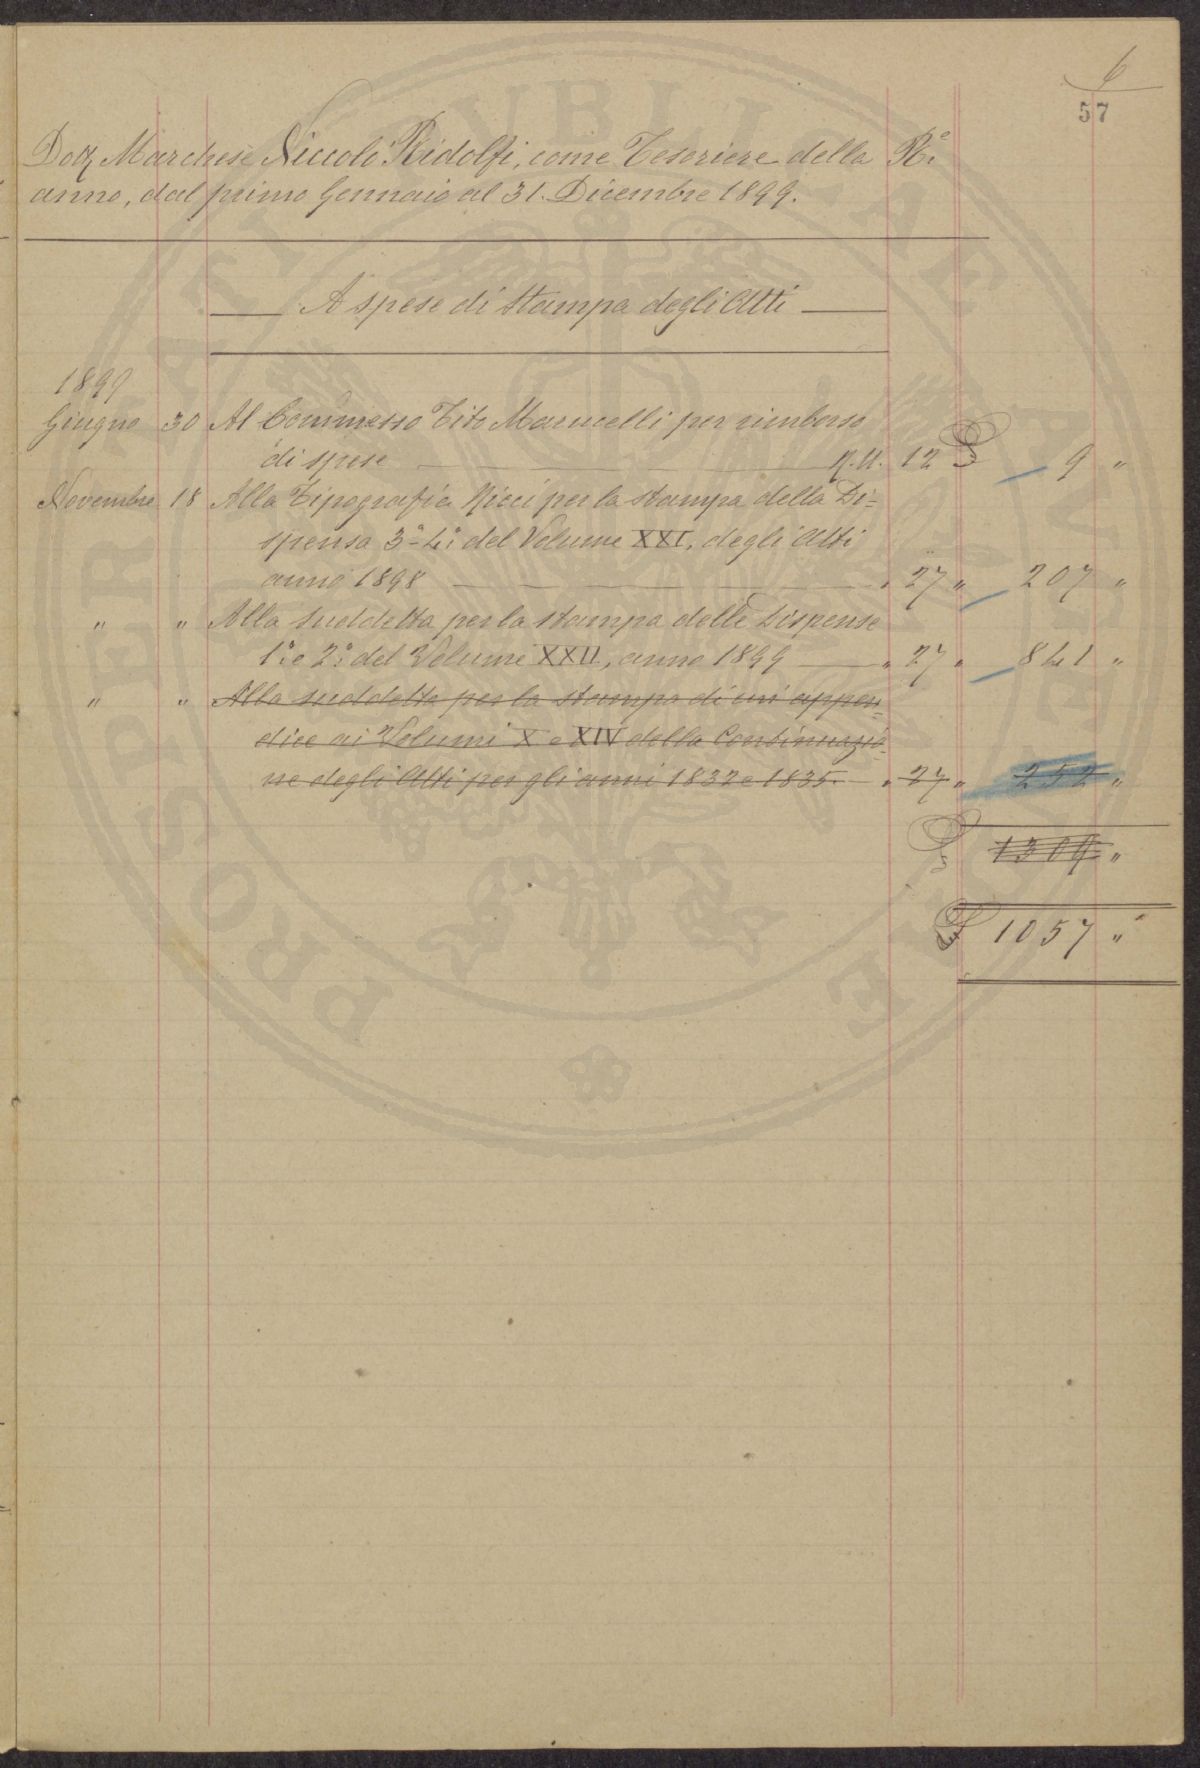 6
57
Dott. Marchese Niccolò Ridolfi, come Tesoriere della Rle.
anno, dal primo Gennaio al 31. Dicembre 1899.
A spese di stampa degli Atti
1899
Giugno 30 Al Commesso Tito Marucelli per rimborso
di spese N.U. 12 £ 9 "
Novembre 18 Alla Tipografia Ricci per la stampa della Di=
spensa 3ª-4ª: del Volume XXI, degli Atti
anno 1898 " 27 " 207 "
" " Alla suddetta per la stampa delle Dispense
1ª: e 2ª: del Volume XXII, anno 1899 " 27 " 841 "
" " Alla suddetta per la stampa di un' appen=
dice ai Volumi X e XIV della Continuazio
ne degli Atti per gli anni 1832 e 1835. " 27 " 252 "
£ 1309 "
£ 1057 "
PROSPERITATI PUBLICAE AUGENDAE